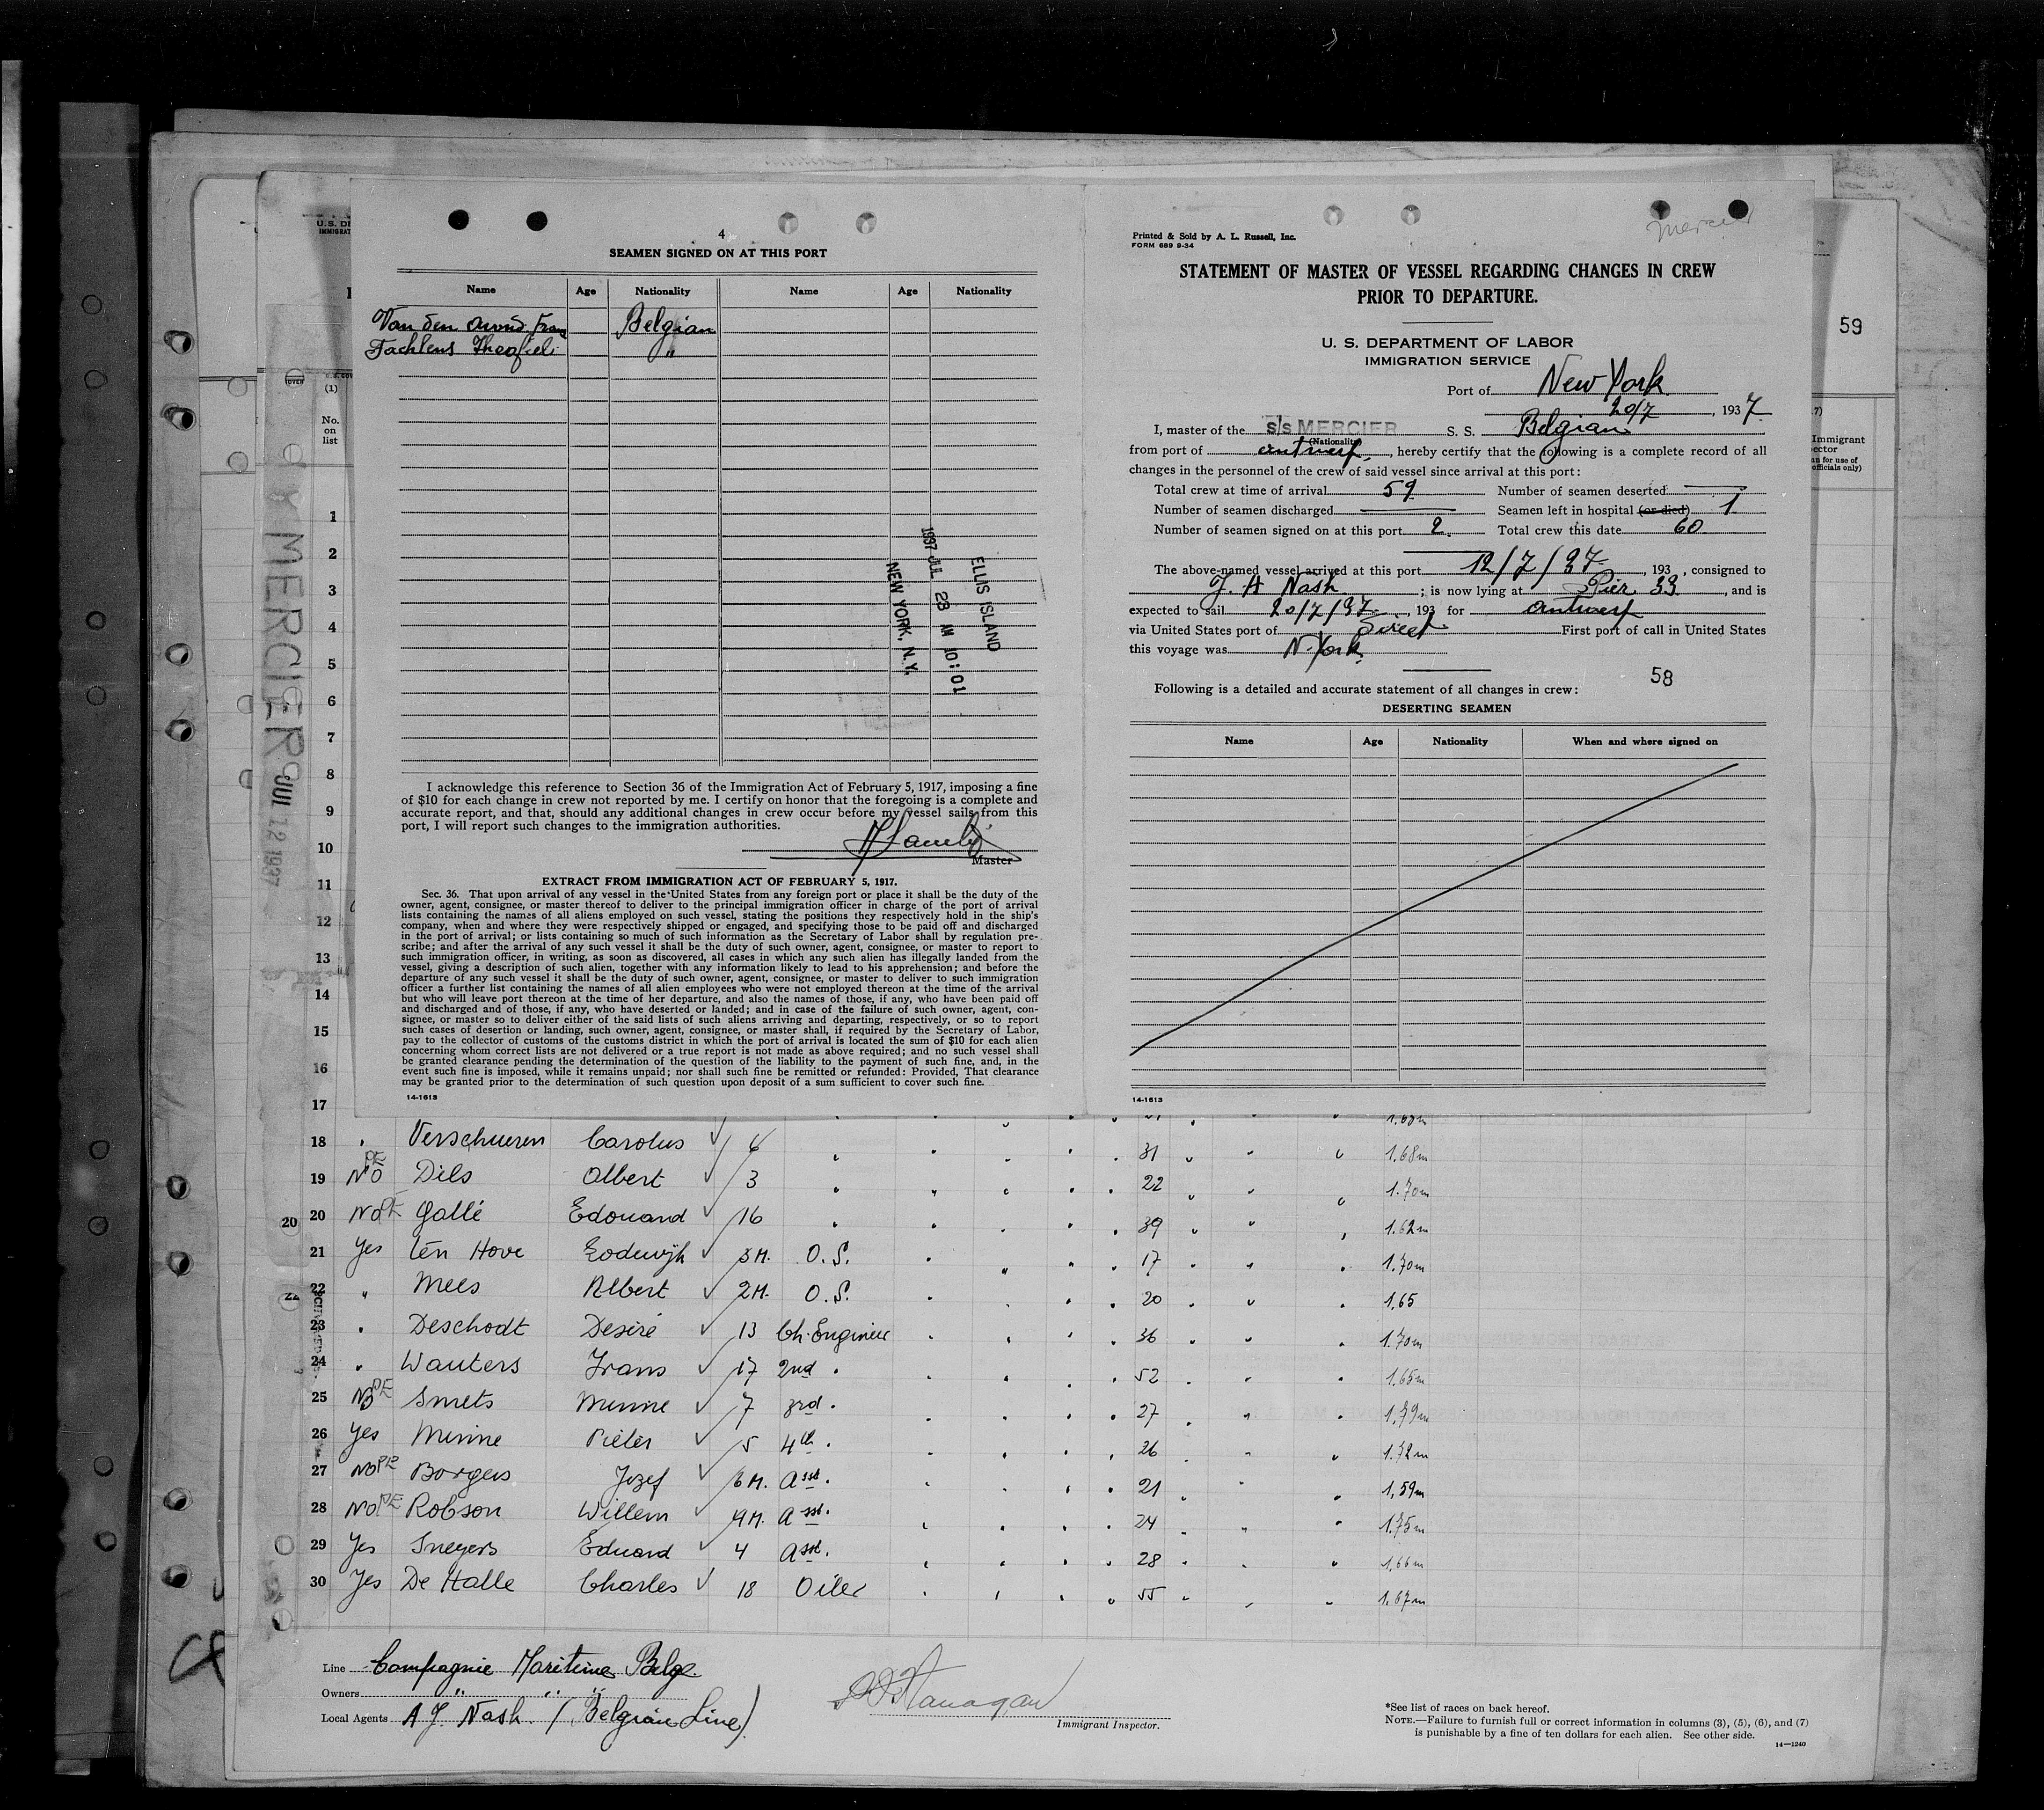 4
SEAMEN SIGNED ON AT THIS PORT
Name Age Nationality Name Age Nationality
Van den Frans Belgian
Theofiel "
1937 JUL 23 AM 10:01
ELLIS ISLAND
NEW YORK, N.Y.
I acknowledge this reference to Section 36 of the Immigration Act of February 5, 1917, imposing a fine
of $10 for each change in crew not reported by me. I certify on honor that the foregoing is a complete and
accurate report, and that, should any additional changes in crew occur before my vessel sails from this
port, I will report such changes to the immigration authorities.
Master
EXTRACT FROM IMMIGRATION ACT OF FEBRUARY 5, 1917.
Sec. 36. That upon arrival of any vessel in the United States from any foreign port or place it shall be the duty of the
owner, agent, consignee, or master thereof to deliver to the principal immigration officer in charge of the port of arrival
lists containing the names of all aliens employed on such vessel, stating the positions they respectively hold in the ship's
company, when and where they were respectively shipped or engaged, and specifying those to be paid off and discharged
in the port of arrival; or lists containing so much of such information as the Secretary of Labor shall by regulation pre-
scribe; and after the arrival of any such vessel it shall be the duty of such owner, agent, consignee, or master to report to
such immigration officer, in writing, as soon as discovered, all cases in which any such alien has illegally landed from the
vessel, giving a description of such alien, together with any information likely to lead to his apprehension; and before the
departure of any such vessel it shall be the duty of such owner, agent, consignee, or master to deliver to such immigration
officer a further list containing the names of all alien employees who were not employed thereon at the time of the arrival
but who will leave port thereon at the time of her departure, and also the names of those, if any, who have been paid off
and discharged and of those, if any, who have deserted or landed; and in case of the failure of such owner, agent, con-
signee, or master so to deliver either of the said lists of such aliens arriving and departing, respectively, or so to report
such cases of desertion or landing, such owner, agent, consignee, or master shall, if required by the Secretary of Labor,
pay to the collector of customs of the customs district in which the port of arrival is located the sum of $10 for each alien
concerning whom correct lists are not delivered or a true report is not made as above required; and no such vessel shall
be granted clearance pending the determination of the question of the liability to the payment of such fine, and, in the
event such fine is imposed, while it remains unpaid; nor shall such fine be remitted or refunded: Provided, That clearance
may be granted prior to the determination of such question upon deposit of a sum sufficient to cover such fine.
14-1613
Mercier
Printed & Sold by A. L. Russell, Inc.
FORM 689 9-34
STATEMENT OF MASTER OF VESSEL REGARDING CHANGES IN CREW
PRIOR TO DEPARTURE.
U. S. DEPARTMENT OF LABOR
IMMIGRATION SERVICE
Port of New York
20/7, 1937
I, master of the s/s MERCIER S. S. Belgian
(Nationality)
from port of antwerp, hereby certify that the following is a complete record of all
changes in the personnel of the crew of said vessel since arrival at this port:
Total crew at time of arrival 59 Number of seamen deserted
Number of seamen discharged Seamen left in hospital (or died) 1
Number of seamen signed on at this port 2. Total crew this date 60
The above-named vessel arrived at this port 12/7/37, 193 , consigned to
J. A Nash; is now lying at Pier 33, and is
expected to sail 20/7/37, 193 for antwerp
via United States port of Direct First port of call in United States
this voyage was N-York
58
Following is a detailed and accurate statement of all changes in crew:
DESERTING SEAMEN
Name Age Nationality When and where signed on
14-1613
59
U.S. DE
IMMIGRAT
(1)
No.
on
list
7)
Immigrant
ector
n for use of
officials only)
MERCIER
JUL 12 1937
1
2
3
4
5
6
7
8
9
10
11
12
13
14
15
16
17 1.68m
18 Verschueren Carolus 6 31 1.68m
19 No PE Dils Albert 3 22 1.70m
20 20 No PE Gallé Edouard 16 39 1.62m
21 Yes Ten Hove Lodewijk 3M. O.S. 17 1.70m
22 " Mees Albert 2M. O.S. 20 1.65
23 " Deschodt Desiré 13 Ch. Engineer 36 1.70m
24 " Wauters Frans 17 2nd " 52 1.65m
25 No PE Smets Minne 7 3rd " 27 1.79m
26 Yes Minne Pieter 5 4th " 26 1.72m
27 No PE Borgers Jozef 6M. Asst. 21 1,59m
28 No PE Robson Willem 9M. Asst. 24 1.75m
29 Yes Sneyers Eduard 4 Asst. 28 1,66m
30 Yes De Halle Charles 18 Oiler 55 1.67m
Line Compagnie Maritime Belge
Owners " " "
Local Agents A J. Nash. (Belgian Line)
Flanagan
Immigrant Inspector.
*See list of races on back hereof.
NOTE.—Failure to furnish full or correct information in columns (3), (5), (6), and (7)
is punishable by a fine of ten dollars for each alien. See other side.
14—1240